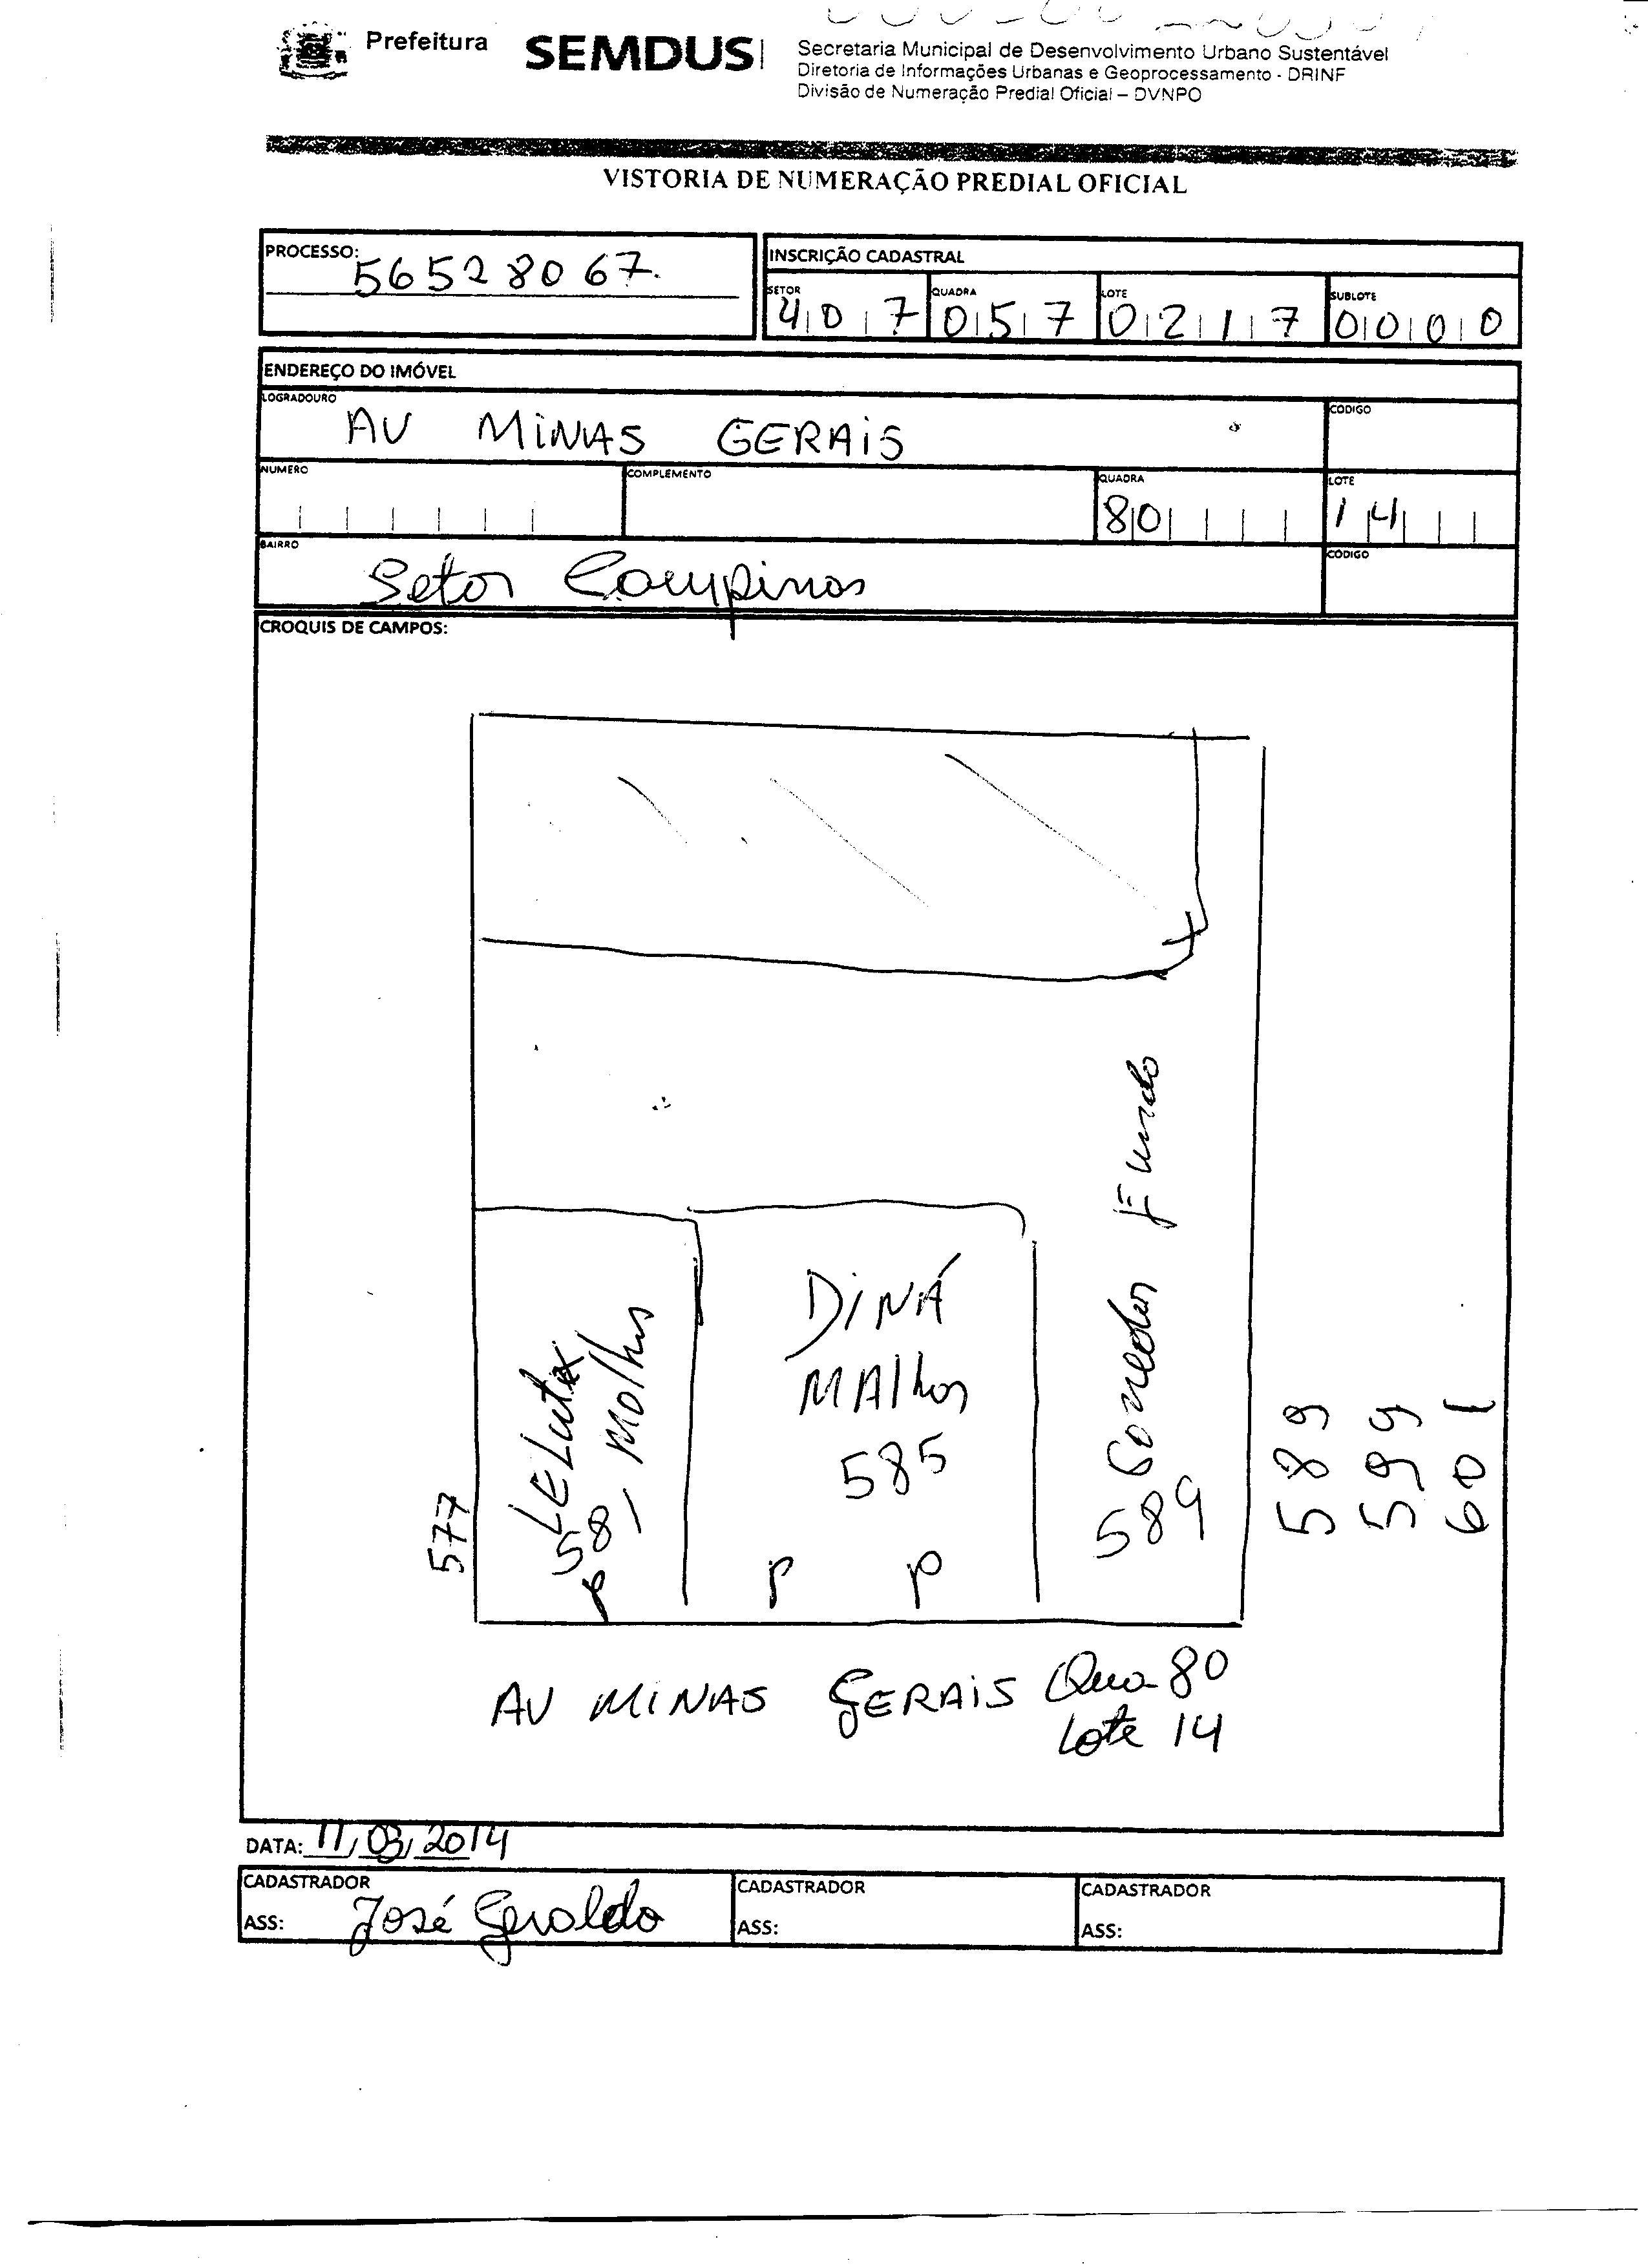 Prefeitura SEMDUS
Secretaria Municipal de Desenvolvimento Urbano Sustentável
Diretoria de Informações Urbanas e Geoprocessamento - DRINF
Divisão de Numeração Predial Oficial – DVNPO
VISTORIA DE NUMERAÇÃO PREDIAL OFICIAL
PROCESSO: 56528067.
INSCRIÇÃO CADASTRAL
SETOR QUADRA LOTE SUBLOTE
407 057 0217 0000
ENDEREÇO DO IMÓVEL
LOGRADOURO CODIGO
AV MINAS GERAIS
NUMERO COMPLEMENTO QUADRA LOTE
80 14
BAIRRO CODIGO
Setor Campinas
CROQUIS DE CAMPOS:
Fundo
DINÁ
MAlhas
585
P P
Malhas
581
P
577
589
589
599
601
AV MINAS GERAIS Qua 80
Lote 14
DATA: 11/03/2014
CADASTRADOR CADASTRADOR CADASTRADOR
ASS: José Geraldo ASS: ASS: